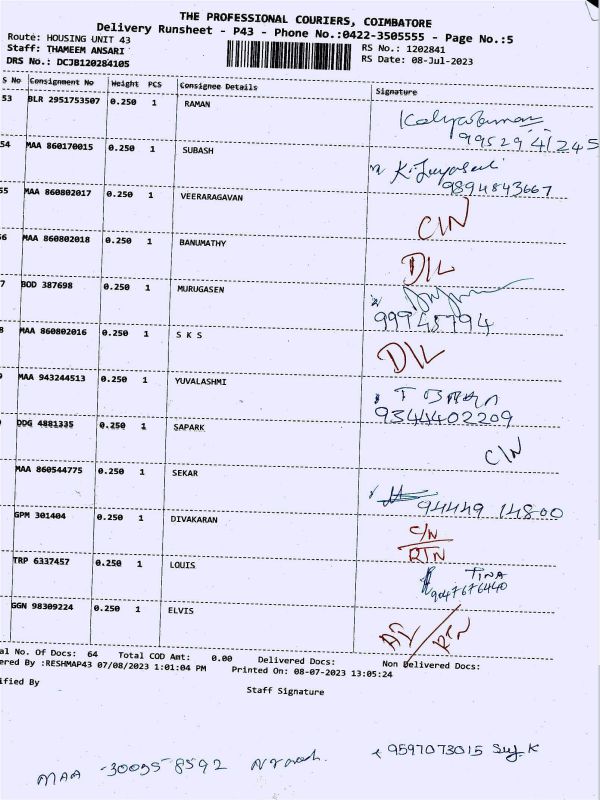 THE PROFESSIONAL COURIERS, COIMBATORE
Delivery Runsheet - P43 - Phone No.:0422-3505555 - Page No.:5
Route: HOUSING UNIT 43
Staff: THAMEEM ANSARI
DRS No.: DCJB120284105
RS No.: 1202841
RS Date: 08-Jul-2023
S No Consignment No Weight PCS Consignee Details Signature
53 BLR 2951753507 0.250 1 RAMAN
99529 41245
54 MAA 860170015 0.250 1 SUBASH
9894843667
55 MAA 860802017 0.250 1 VEERARAGAVAN C/N
56 MAA 860802018 0.250 1 BANUMATHY D/L
7 BOD 387698 0.250 1 MURUGASEN
99945794
8 MAA 860802016 0.250 1 S K S D/L
9 MAA 943244513 0.250 1 YUVALASHMI
9344402209
0 DDG 4881335 0.250 1 SAPARK C/N
MAA 860544775 0.250 1 SEKAR
94449 14800
GPM 301404 0.250 1 DIVAKARAN C/N
RTN
TRP 6337457 0.250 1 LOUIS TINA
9047676440
GGN 98309224 0.250 1 ELVIS RTN
al No. Of Docs: 64 Total COD Amt: 0.00 Delivered Docs: Non Delivered Docs:
ered By :RESHMAP43 07/08/2023 1:01:04 PM Printed On: 08-07-2023 13:05:24
ified By
Staff Signature
9597073015 Suj.K
MAA -300358592